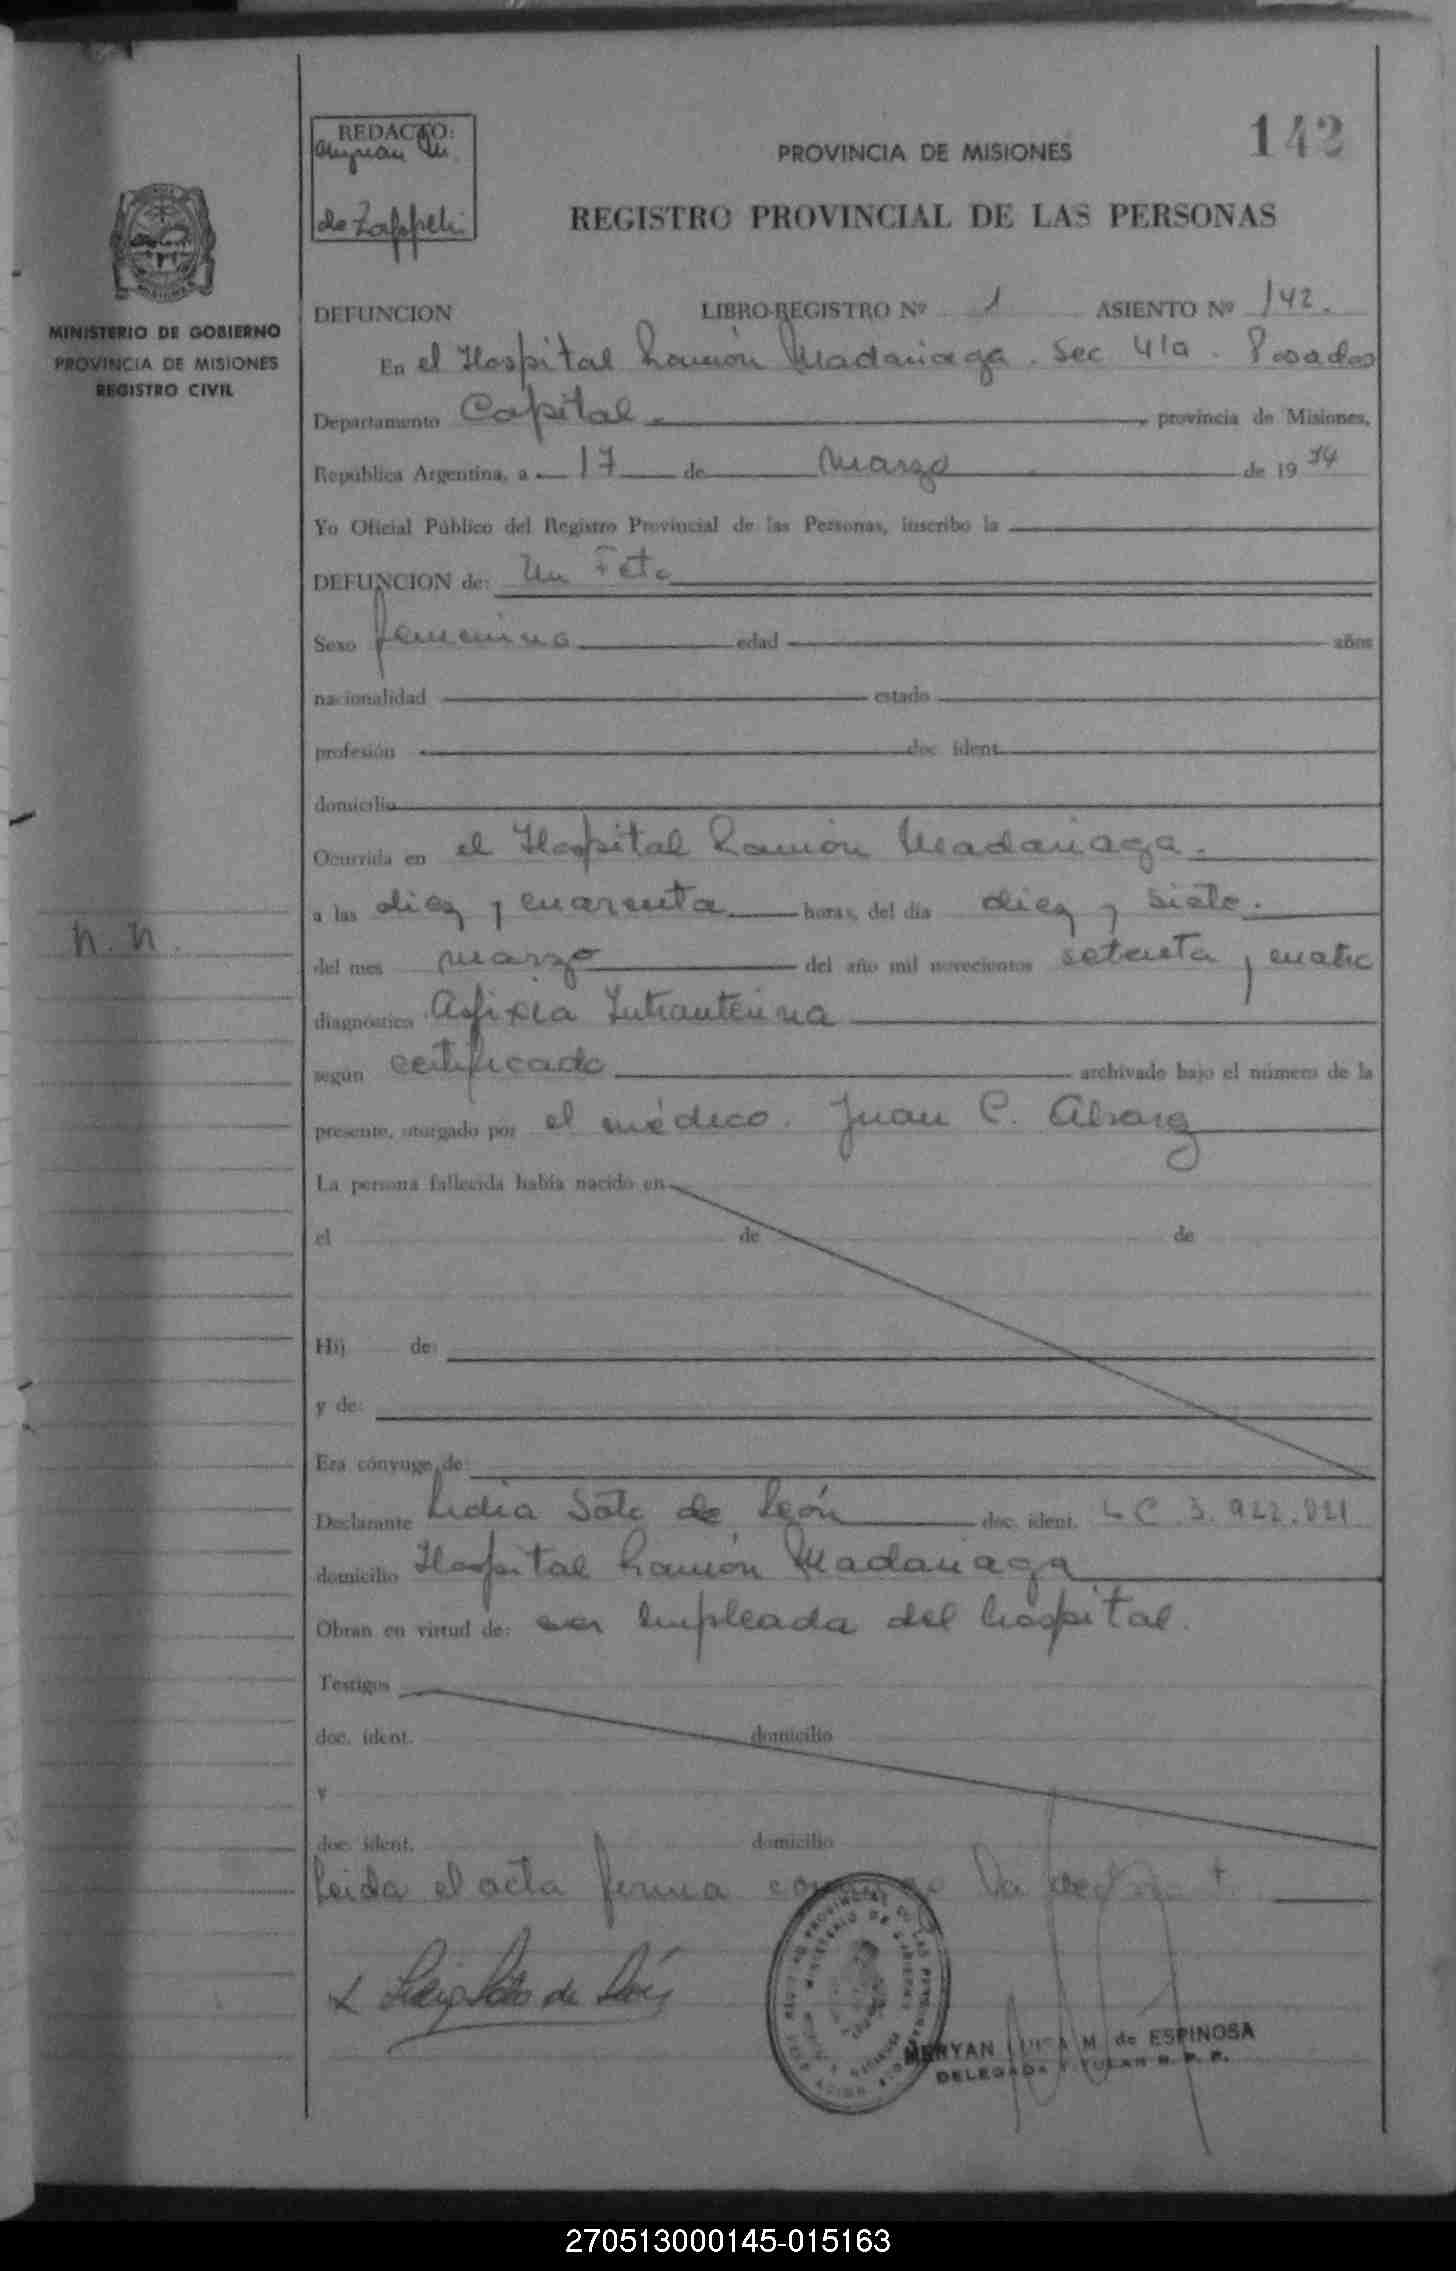 142
REDACTO:
de Zappeli
PROVINCIA DE MISIONES
REGISTRO PROVINCIAL DE LAS PERSONAS
MINISTERIO DE GOBIERNO
PROVINCIA DE MISIONES
REGISTRO CIVIL
DEFUNCION LIBRO-REGISTRO Nº 1 ASIENTO Nº 142.
En el Hospital Ramón Madariaga. Sec 4ta. Posadas
Departamento Capital. provincia de Misiones,
República Argentina, a 17 de Marzo de 19 74
Yo Oficial Público del Registro Provincial de las Personas, inscribo la
DEFUNCION de: Un Feto
Sexo femenino edad años
nacionalidad estado
profesión doc. ident.
domicilio
Ocurrida en el Hospital Ramón Madariaga.
a las diez y cuarenta horas, del día diez y siete.
n. n.
del mes marzo del año mil novecientos setenta y cuatro
diagnóstico Asfixia Intrauterina
según certificado archivado bajo el número de la
presente, otorgado por el médico. Juan C. Alvarez
La persona fallecida había nacido en
el de de
Hij de:
y de:
Era cónyuge de:
Declarante Lidia Soto de León doc. ident. L C 3.922.021
domicilio Hospital Ramón Madariaga
Obran en virtud de: ser Empleada del hospital.
Testigos
doc. ident. domicilio
y
doc. ident. domicilio
Leida el acta firma conmigo la
Lidia Soto de León
MERYAN LUISA M. de ESPINOSA
DELEGADA TITULAR R. P. P.
270513000145-015163